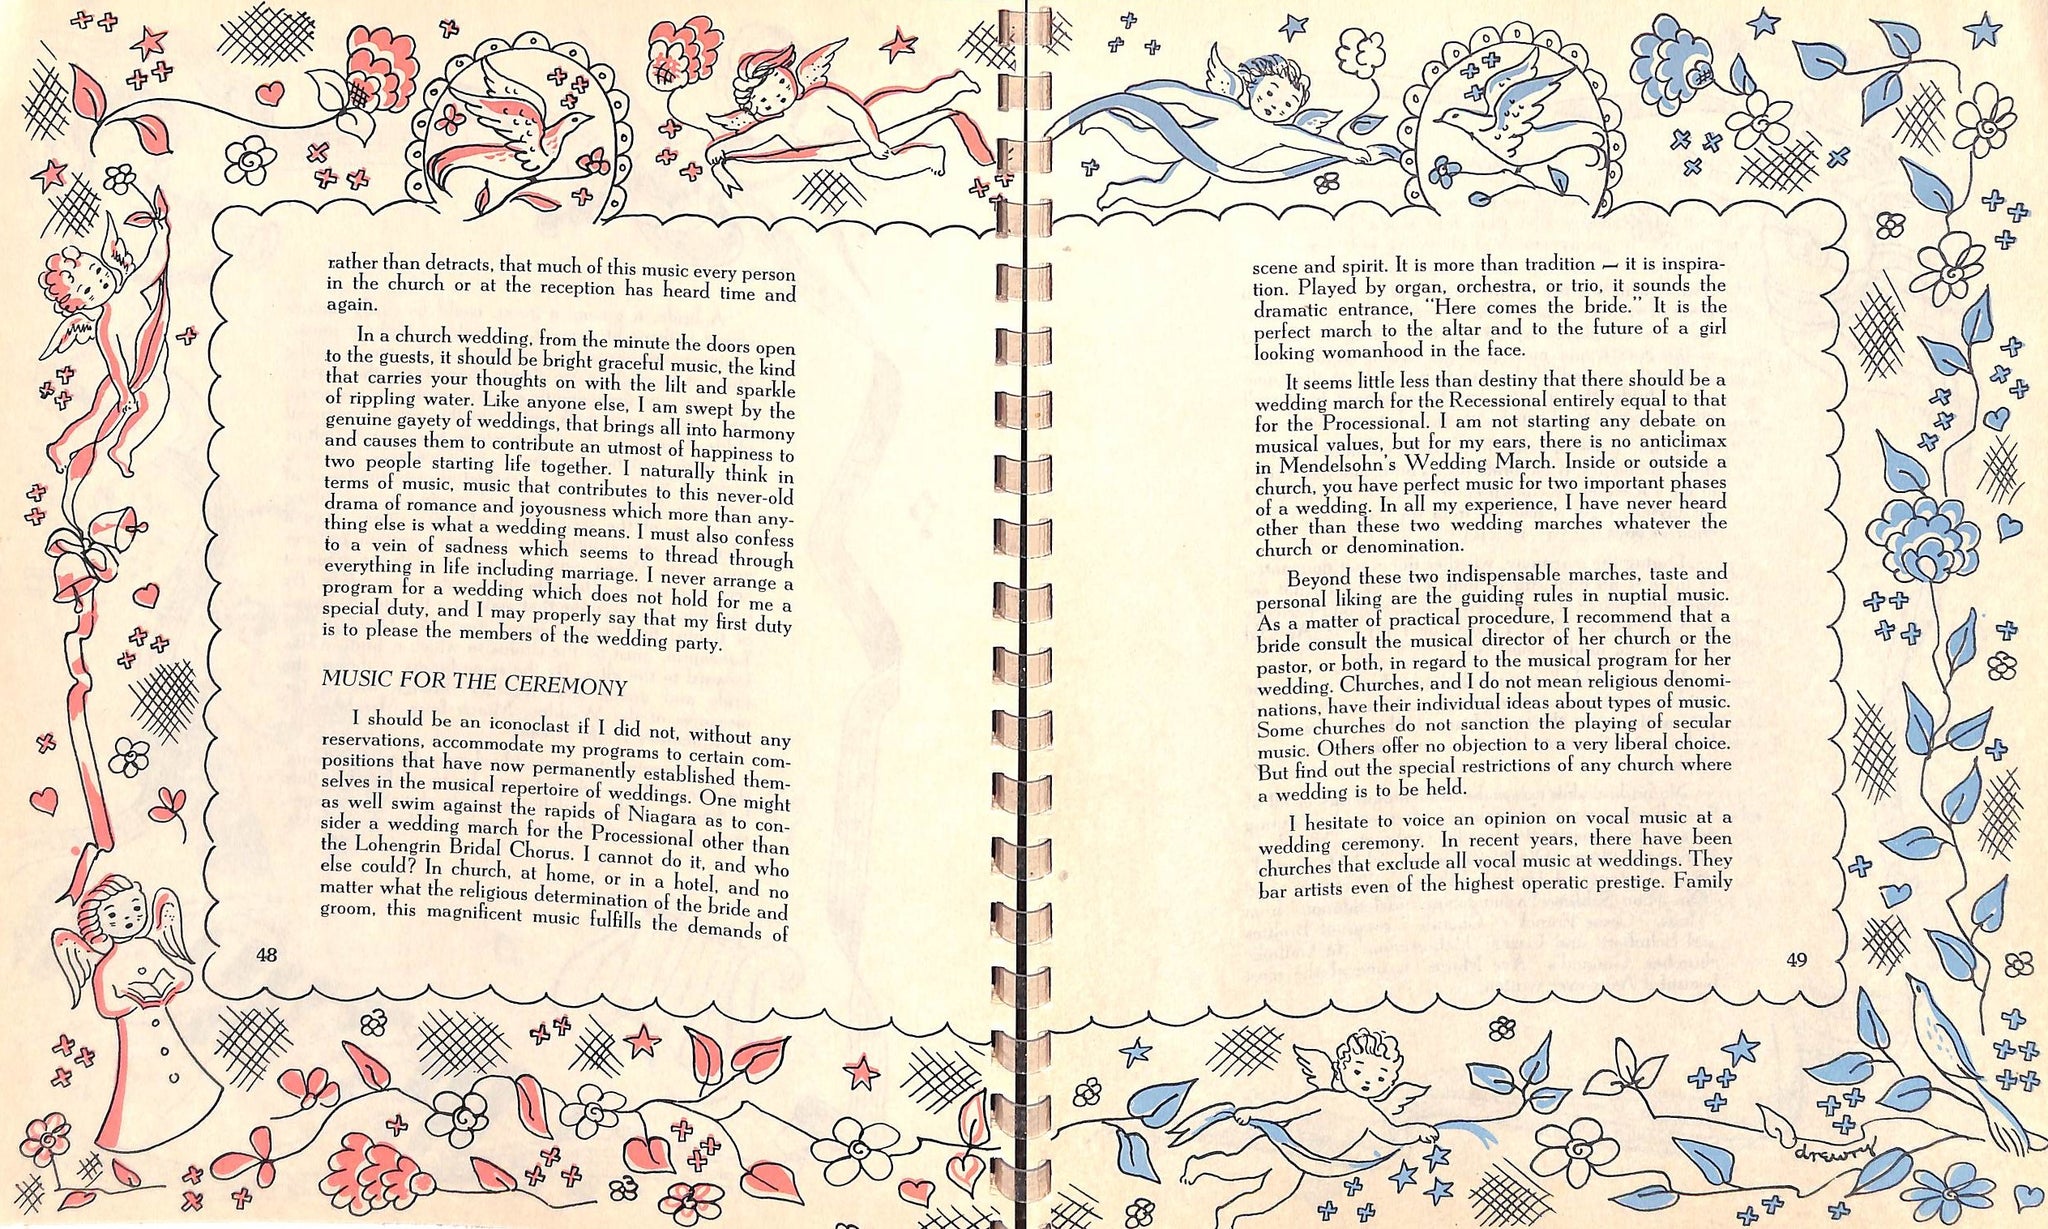 rather than detracts, that much of this music every person
in the church or at the reception has heard time and
again.
In a church wedding, from the minute the doors open
to the guests, it should be bright graceful music, the kind
that carries your thoughts on with the lilt and sparkle
of rippling water. Like anyone else, I am swept by the
genuine gayety of weddings, that brings all into harmony
and causes them to contribute an utmost of happiness to
two people starting life together. I naturally think in
terms of music, music that contributes to this never-old
drama of romance and joyousness which more than any-
thing else is what a wedding means. I must also confess
to a vein of sadness which seems to thread through
everything in life including marriage. I never arrange a
program for a wedding which does not hold for me a
special duty, and I may properly say that my first duty
is to please the members of the wedding party.
MUSIC FOR THE CEREMONY
I should be an iconoclast if I did not, without any
reservations, accommodate my programs to certain com-
positions that have now permanently established them-
selves in the musical repertoire of weddings. One might
as well swim against the rapids of Niagara as to con-
sider a wedding march for the Processional other than
the Lohengrin Bridal Chorus. I cannot do it, and who
else could? In church, at home, or in a hotel, and no
matter what the religious determination of the bride and
groom, this magnificent music fulfills the demands of
48
scene and spirit. It is more than tradition — it is inspira-
tion. Played by organ, orchestra, or trio, it sounds the
dramatic entrance, "Here comes the bride." It is the
perfect march to the altar and to the future of a girl
looking womanhood in the face.
It seems little less than destiny that there should be a
wedding march for the Recessional entirely equal to that
for the Processional. I am not starting any debate on
musical values, but for my ears, there is no anticlimax
in Mendelsohn's Wedding March. Inside or outside a
church, you have perfect music for two important phases
of a wedding. In all my experience, I have never heard
other than these two wedding marches whatever the
church or denomination.
Beyond these two indispensable marches, taste and
personal liking are the guiding rules in nuptial music.
As a matter of practical procedure, I recommend that a
bride consult the musical director of her church or the
pastor, or both, in regard to the musical program for her
wedding. Churches, and I do not mean religious denomi-
nations, have their individual ideas about types of music.
Some churches do not sanction the playing of secular
music. Others offer no objection to a very liberal choice.
But find out the special restrictions of any church where
a wedding is to be held.
I hesitate to voice an opinion on vocal music at a
wedding ceremony. In recent years, there have been
churches that exclude all vocal music at weddings. They
bar artists even of the highest operatic prestige. Family
49
drewry